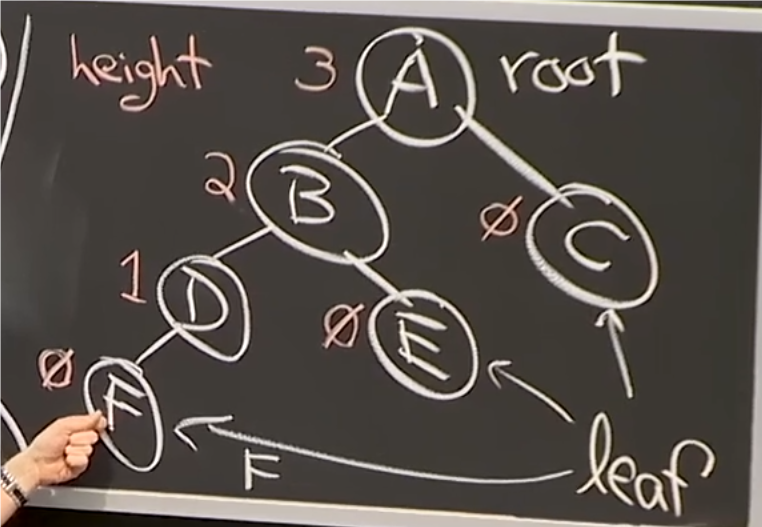 height 3 A root
2 B
Ø C
1 D
Ø E
Ø F
F
leaf